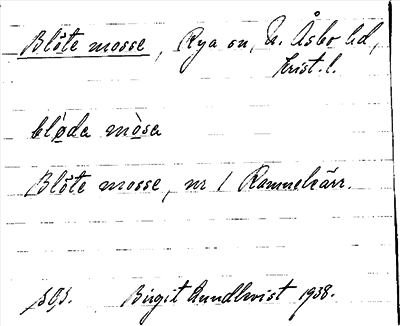 Blöte mosse, Rya sn, N. Åsbo hd,
Krist. l.
blø̀da mòsa
Blöte mosse, nr 1 Rammekärr.
Birgit Lundkvist 1938.